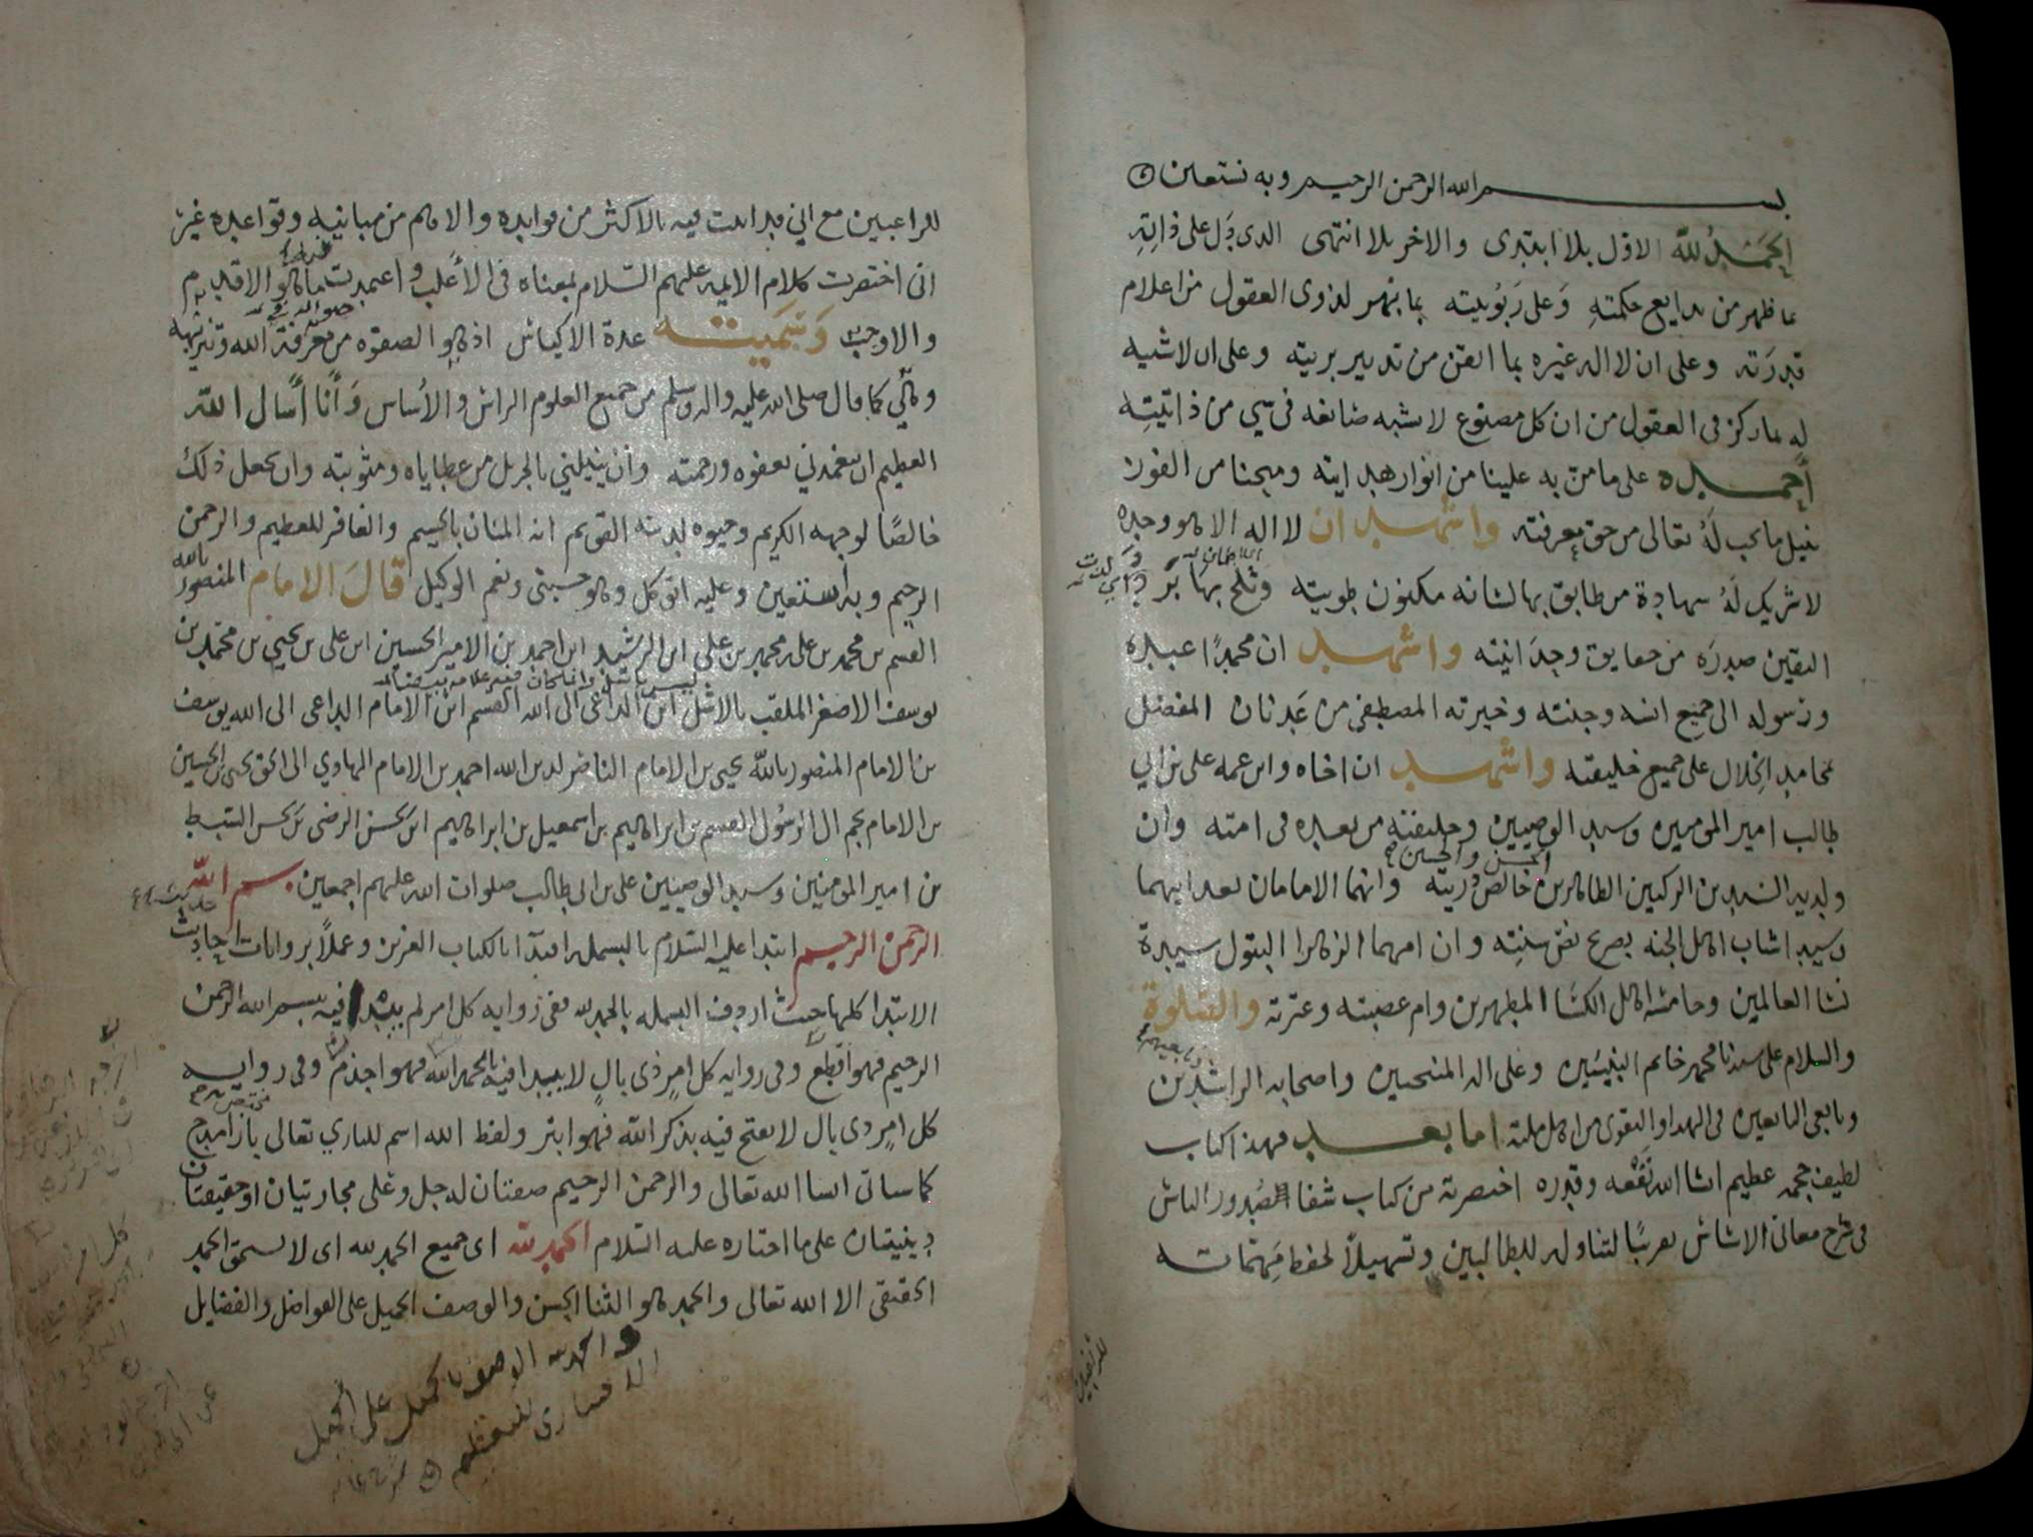 بسم الله الرحمن الرحيم وبه نستعين
الحمد لله الاول بلا ابتدى والاخر بلا انتهى الدى دل على ذاته
بما ظهر من بدايع حكمته وعلى ربوبيته بما بهر لذوى العقول من اعلام
قدرته وعلى ان لا اله غيره بما اتقن من تدبير بريته وعلى ان لا شبيه
له بما ركز فى العقول من ان كل مصنوع لا يشبه صانعه فى شي من ذاتيته
أحمده على ما من به علينا من انوار هدايته ومنحنا من الفوز
بنيل ما يجب له تعالى من حق معرفته واشهد ان لا اله الا هو وحده
لا شريك له شهادة من طابق بها لسانه مكنون طويته وثلج بها برد
اليقين صدره من حقايق وحدانيته واشهد ان محمدا عبده
ورسوله الى جميع انسه وجنته وخيرته المصطفى من عدنان المفضل
بمحامد الخلال على جميع خليقته واشهد ان اخاه وابن عمه على بن ابي
طالب امير المومنين وسيد الوصيين وخليفته من بعده فى امته وان
ولديه السيدين الزكيين الطاهرين الحسن والحسين خالص ذريته وانهما الامامان بعد ابيهما
وسيدا شباب اهل الجنه بصريح نص سنته وان امهما الزهرا البتول سيدة
نسا العالمين وخامسة اهل الكسا المطهرين وام عصبته وعترته والصلوة
والسلام على سيدنا محمد خاتم النبيين وعلى اله المنتجبين واصحابه الراشدين
وتابعى التابعين فى الهدا والتقوى من اهل ملته اما بعد فهذا كتاب
لطيف حجمه عظيم انشا الله نفعه وقدره اختصرته من كتاب شفا الصدور الناس
فى شرح معانى الاساس تقريبا لتناوله للطالبين وتسهيلا لحفظ مهماته
للراغبين
للراغبين مع اني قد اتيت فيه بالاكثر من فوايده والاهم من مبانيه وقواعده غير
انى اختصرت كلام الايمه عليهم السلام بمعناه فى الاغلب واعتمدت ما هو الاقدم
والاوجب وسميته عدة الاكياس اذ هو الصفوه من معرفة الله وتنزيهه
وهي كما قال صلى الله عليه واله وسلم من جميع العلوم الراس والأساس وأنا أسال الله
العظيم ان يتغمدني بعفوه ورحمته وان ينيلني الجزيل من عطاياه ومثوبته وان يجعل ذلك
خالصا لوجهه الكريم وحيوه لدينه القويم انه المنان بالجسيم والغافر للعظيم والرحمن
الرحيم وبه أستعين وعليه اتوكل وهو حسبي ونعم الوكيل قال الامام المنصور بالله
القسم بن محمد بن على بن محمد بن على ابن الرشيد ابن احمد بن الامير الحسين ابن على بن يحيى بن محمد بن
يوسف الاصغر الملقب بالاشل ابن الداعى الى الله القسم ابن الامام الداعى الى الله يوسف
بن الامام المنصور بالله يحيى بن الامام الناصر لدين الله احمد بن الامام الهادي الى الحق يحيى بن الحسين
بن الامام نجم ال الرسول القسم بن ابراهيم بن اسمعيل بن ابراهيم ابن الحسن الرضى بن الحسن السبط
بن امير المومنين وسيد الوصيين على بن ابى طالب صلوات الله عليهم اجمعين بسم الله
الرحمن الرحيم ابتدا عليه السلام بالبسمله اقتدآ بالكتاب العزيز وعملا بروايات احاديث
الابتدا كلها حيث اردف البسمله بالحمد لله ففى روايه كل امر لم يبدا فيه ببسم الله الرحمن
الرحيم فهو اقطع وفى روايه كل امر ذى بال لا يبدا فيه بالحمد لله فهو اجذم وفى روايه
كل امر ذى بال لا يفتح فيه بذكر الله فهو ابتر ولفظ الله اسم للباري تعالى بازا مدح
كما سياتى انشا الله تعالى والرحمن الرحيم صفتان له جل وعلى مجازيتان او حقيقتان
دينيتان على ما اختاره عليه السلام الحمد لله اى جميع الحمد لله اى لا يستحق الحمد
الحقيقى الا الله تعالى والحمد هو الثنا الحسن والوصف الجميل على الفواضل والفضايل
والحمد لله الوصف بالجميل على الجميل
الاختيارى للتعظيم